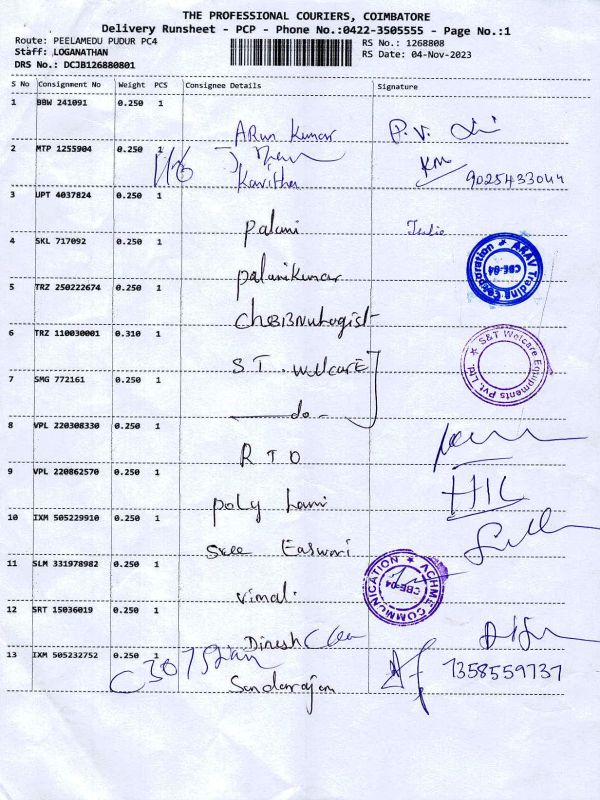 THE PROFESSIONAL COURIERS, COIMBATORE
Delivery Runsheet - PCP - Phone No.:0422-3505555 - Page No.:1
Route: PEELAMEDU PUDUR PC4
RS No.: 1268808
Staff: LOGANATHAN
RS Date: 04-Nov-2023
DRS No.: DCJB126880801
S No Consignment No Weight PCS Consignee Details Signature
1 BBW 241091 0.250 1
ARun Kumar P.V.
2 MTP 1255904 0.250 1
Kavitha KM 9025433044
3 UPT 4037824 0.250 1
Palani Julie
4 SKL 717092 0.250 1
palanikumar
ARAV Trading Corporation CBE-04
5 TRZ 250222674 0.250 1
6 TRZ 110030001 0.310 1
S.T. welcare
S&T Welcare Equipments Pvt. Ltd.
7 SMG 772161 0.250 1
do
8 VPL 220308330 0.250 1
R T O
9 VPL 220862570 0.250 1
poly
10 IXM 505229910 0.250 1
Sree Easwari
11 SLM 331978982 0.250 1
Vimal
ACHME COMMUNICATION CBE-04
12 SRT 15036019 0.250 1
Dinesh
13 IXM 505232752 0.250 1
Sundarrajan 7358559737